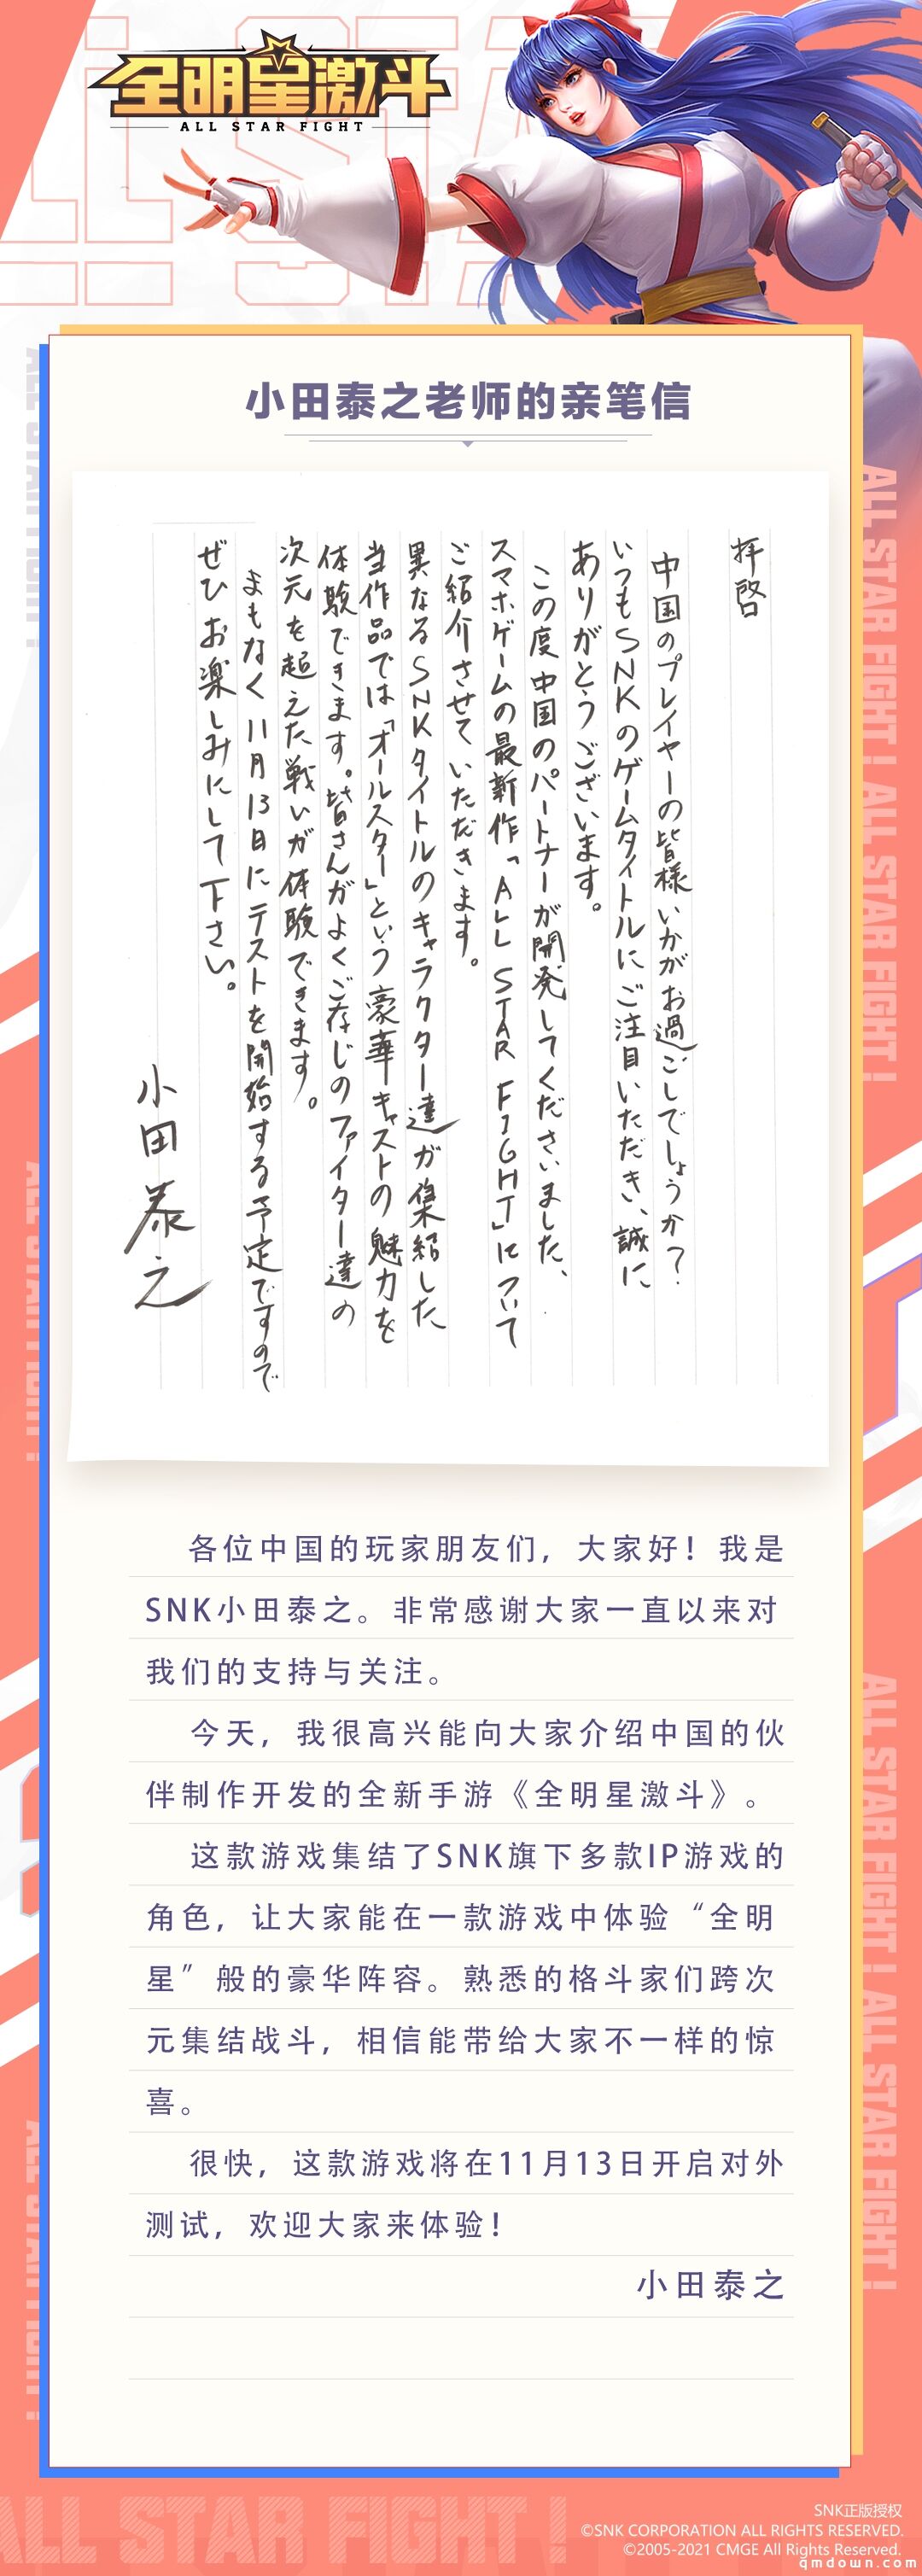 全明星激斗
ALL STAR FIGHT
小田泰之老师的亲笔信
拝啓
中国のプレイヤーの皆様いかがお過ごしでしょうか？
いつもSNKのゲームタイトルにご注目いただき、誠に
ありがとうございます。
この度中国のパートナーが開発してくださいました、
スマホゲームの最新作「ALL STAR FIGHT」について
ご紹介させていただきます。
異なるSNKタイトルのキャラクター達が集結した
当作品では「オールスター」という豪華キャストの魅力を
体験できます。皆さんがよくご存じのファイター達の
次元を超えた戦いが体験できます。
まもなく11月13日にテストを開始する予定ですので
ぜひお楽しみにして下さい。
小田泰之
各位中国的玩家朋友们，大家好！我是
SNK小田泰之。非常感谢大家一直以来对
我们的支持与关注。
今天，我很高兴能向大家介绍中国的伙
伴制作开发的全新手游《全明星激斗》。
这款游戏集结了SNK旗下多款IP游戏的
角色，让大家能在一款游戏中体验“全明
星”般的豪华阵容。熟悉的格斗家们跨次
元集结战斗，相信能带给大家不一样的惊
喜。
很快，这款游戏将在11月13日开启对外
测试，欢迎大家来体验！
小田泰之
ALL STAR FIGHT! ALL STAR FIGHT!
ALL STAR FIGHT! ALL STAR FIGHT!
ALL STAR FIGHT!
SNK正版授权
©SNK CORPORATION ALL RIGHTS RESERVED.
©2005-2021 CMGE All Rights Reserved.
qmdown.com